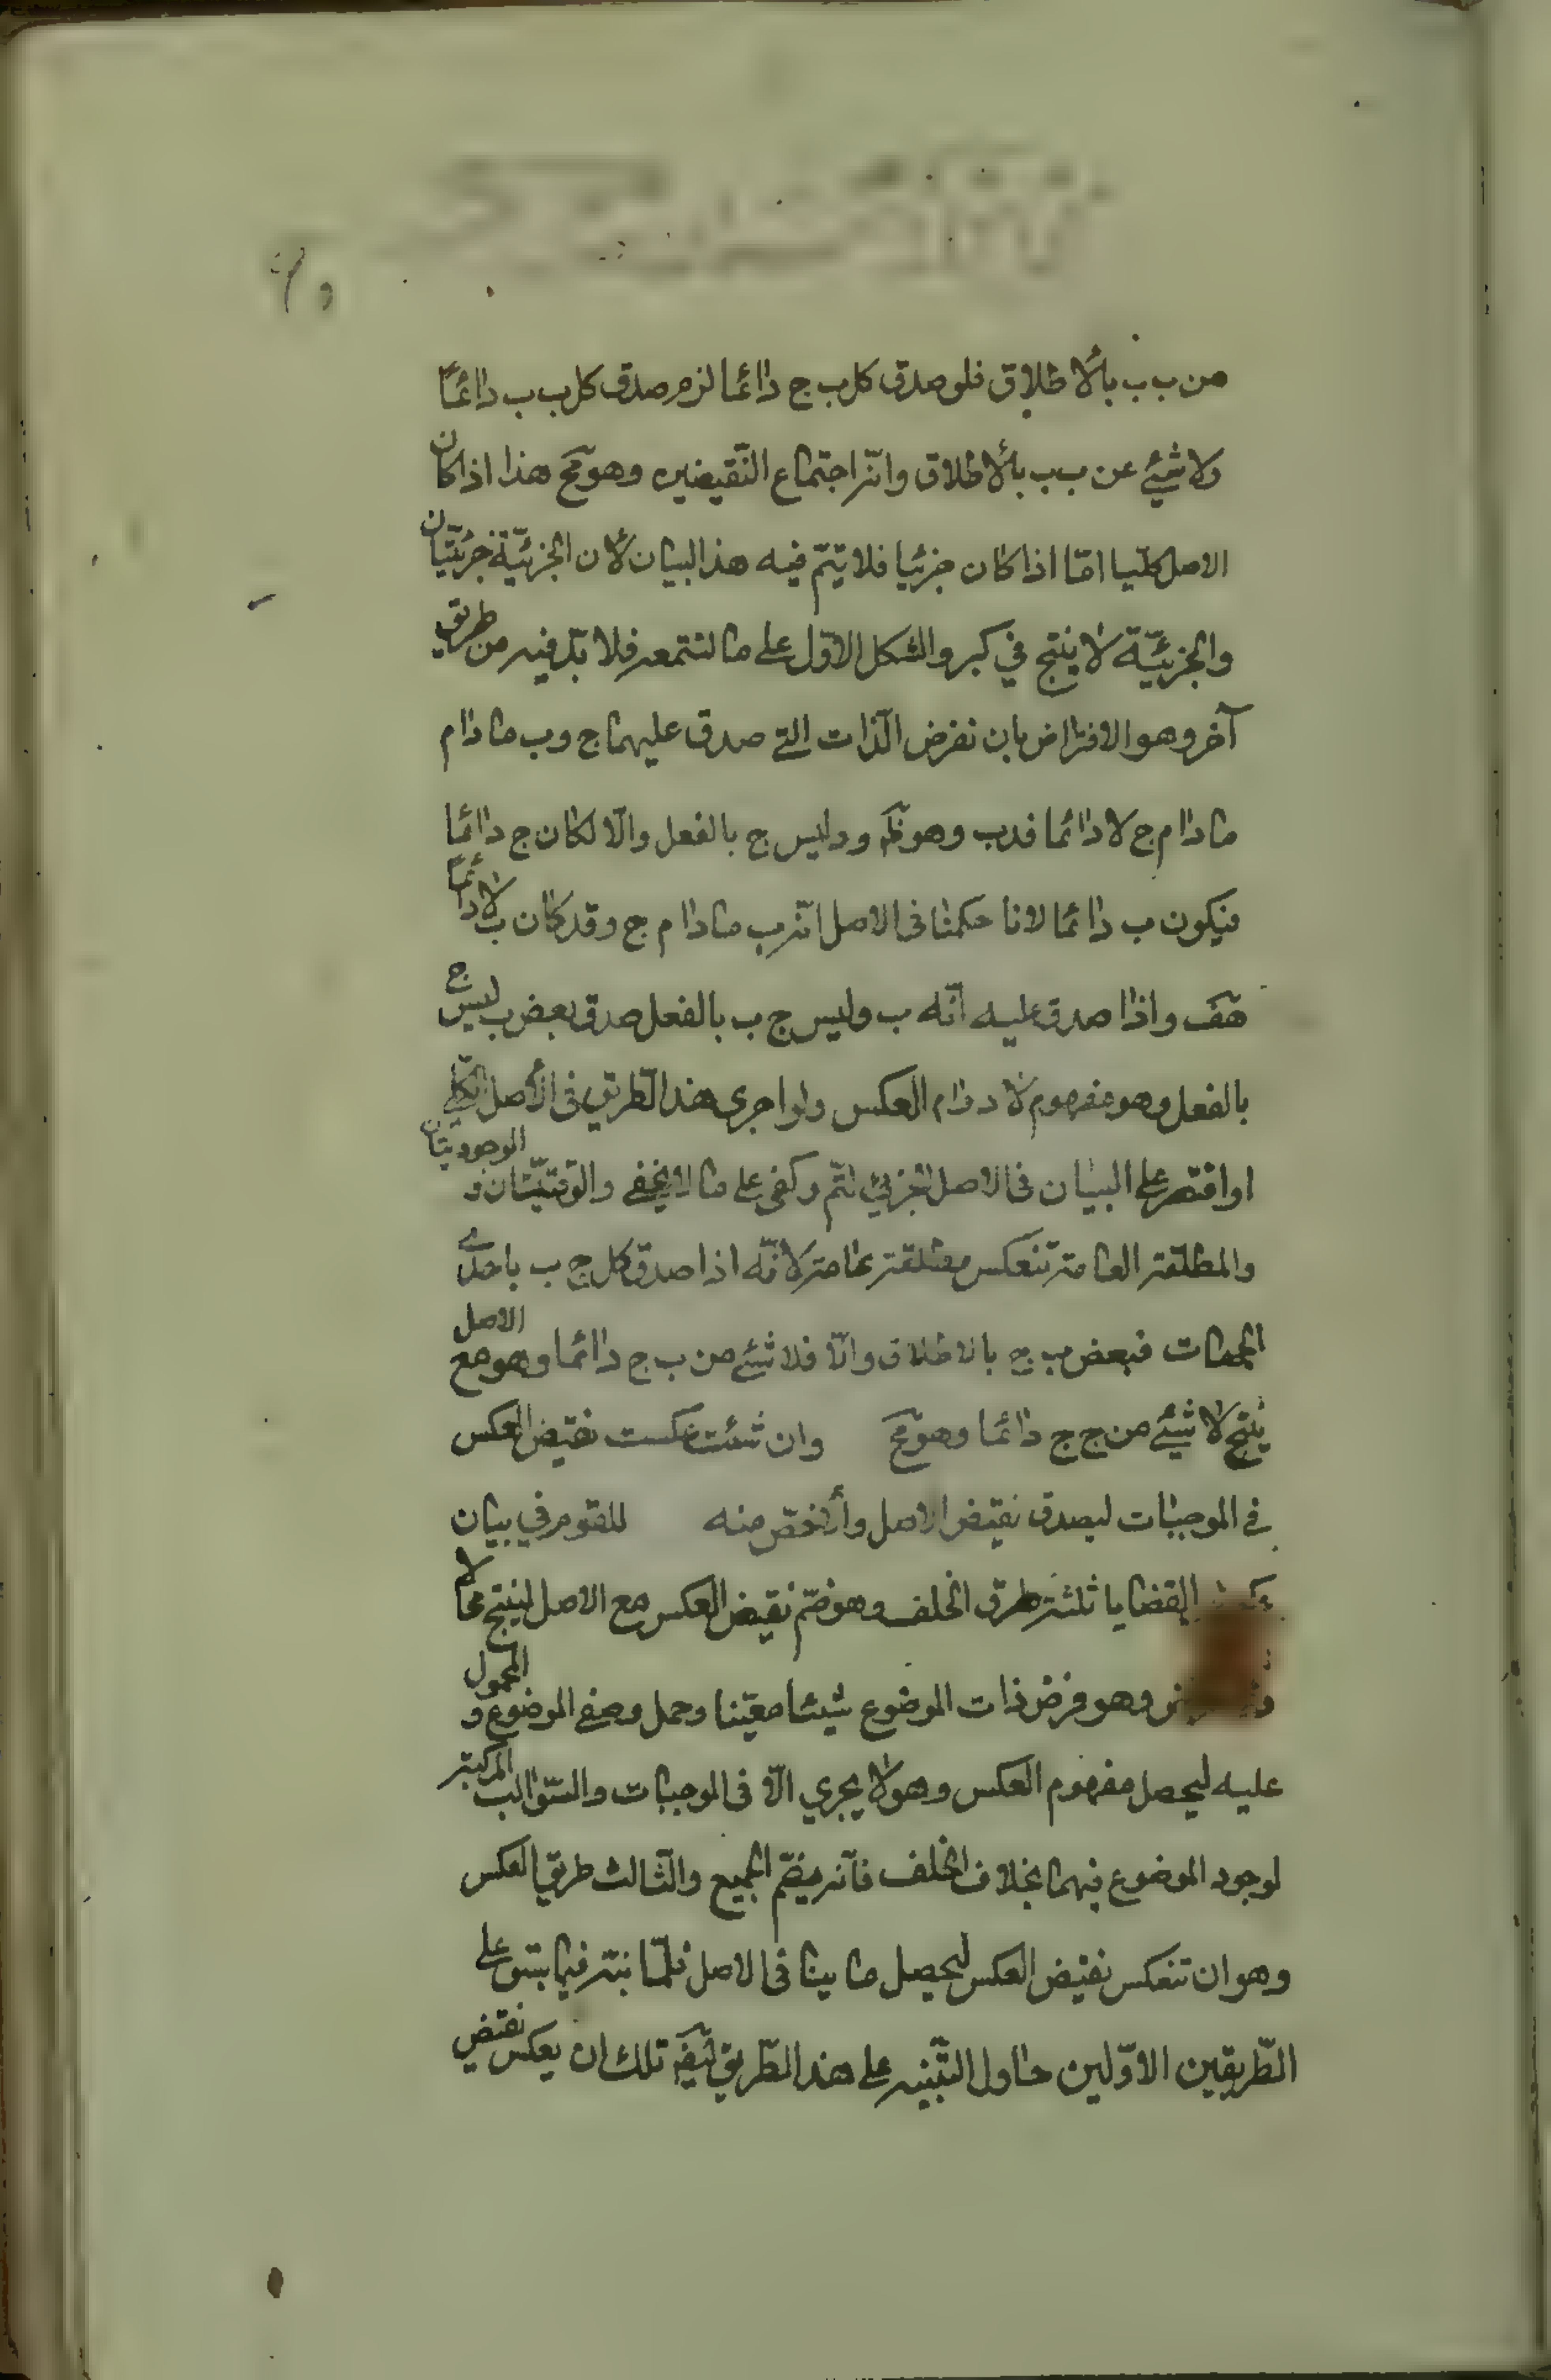 من ب ب بالأطلاق فلو صدق كل ب ج دائما لزم صدق كل ب ب دائمًا
ولا شيئ من ب ب بالأطلاق وانّه اجتماع النّقيضين وهو مح هذا اذا كان
الاصل كليّا امّا اذا كان جزئيا فلا يتمّ فيه هذا البيان لأن الجزئيّة جزئيّتان
والجزئيّة لا ينتج في كبرو الشكل الاوّل على ما لستمعه فلا بدّ فيه من طريق
آخر وهو الافتراض بان نفرض الّذات التي صدق عليها ج وب ما دام
ما دام ج لا دائما فدب وهو ظ ودليس ج بالفعل والّا لكان ج دائما
فيكون ب دائما لانا حكمنا في الاصل انّه ب ما دام ج وقد كان ب لا دائمًا
هف واذا صدق عليه انّه ب وليس ج ب بالفعل صدق بعض ب ليس ج
بالفعل وهو مفهوم لا دوام العكس ولو اجرى هذا الّطريق في الأصل الكلّي
او اقتصر على البيان في الاصل الجزئي لتمّ وكفى على ما لا يخفى والوقتيّتان و الوجوديّتان
والمطلقة العامة تنعكس مطلقة عامة لانّه اذا صدق كل ج ب باحدى
الجهات فبعض ب ج بالاطلاق والّا فلا شيئ من ب ج دائما وهو مع الاصل
ينتج لا شيئ من ج ج دائما وهو مح وان شئت عكست نقيض العكس
في الموجبات ليصدق نقيض الاصل وأالاخصّ منه للقوم في بيان
القضايا ثلثة طرق الخلف وهو ضمّ نقيض العكس مع الاصل لينتج محالا
وهو فرض ذات الموضوع شيئا معيّنا وحمل وصفي الموضوع و المحمول
عليه ليحصل مفهوم العكس وهو لا يجري الّا في الموجبات والسّوالب المركبة
لوجود الموضوع فيهما بخلاف الخلف فآنه يعمّ الجميع والّثالث طريق العكس
وهو ان تنعكس نقيض العكس ليحصل ما ينافي الاصل فلمّا نبّه فيما سبق على
الطّريقين الاوّلين حاول التّنبيه على هذا الطّريق تلك ان يعكس نقيض